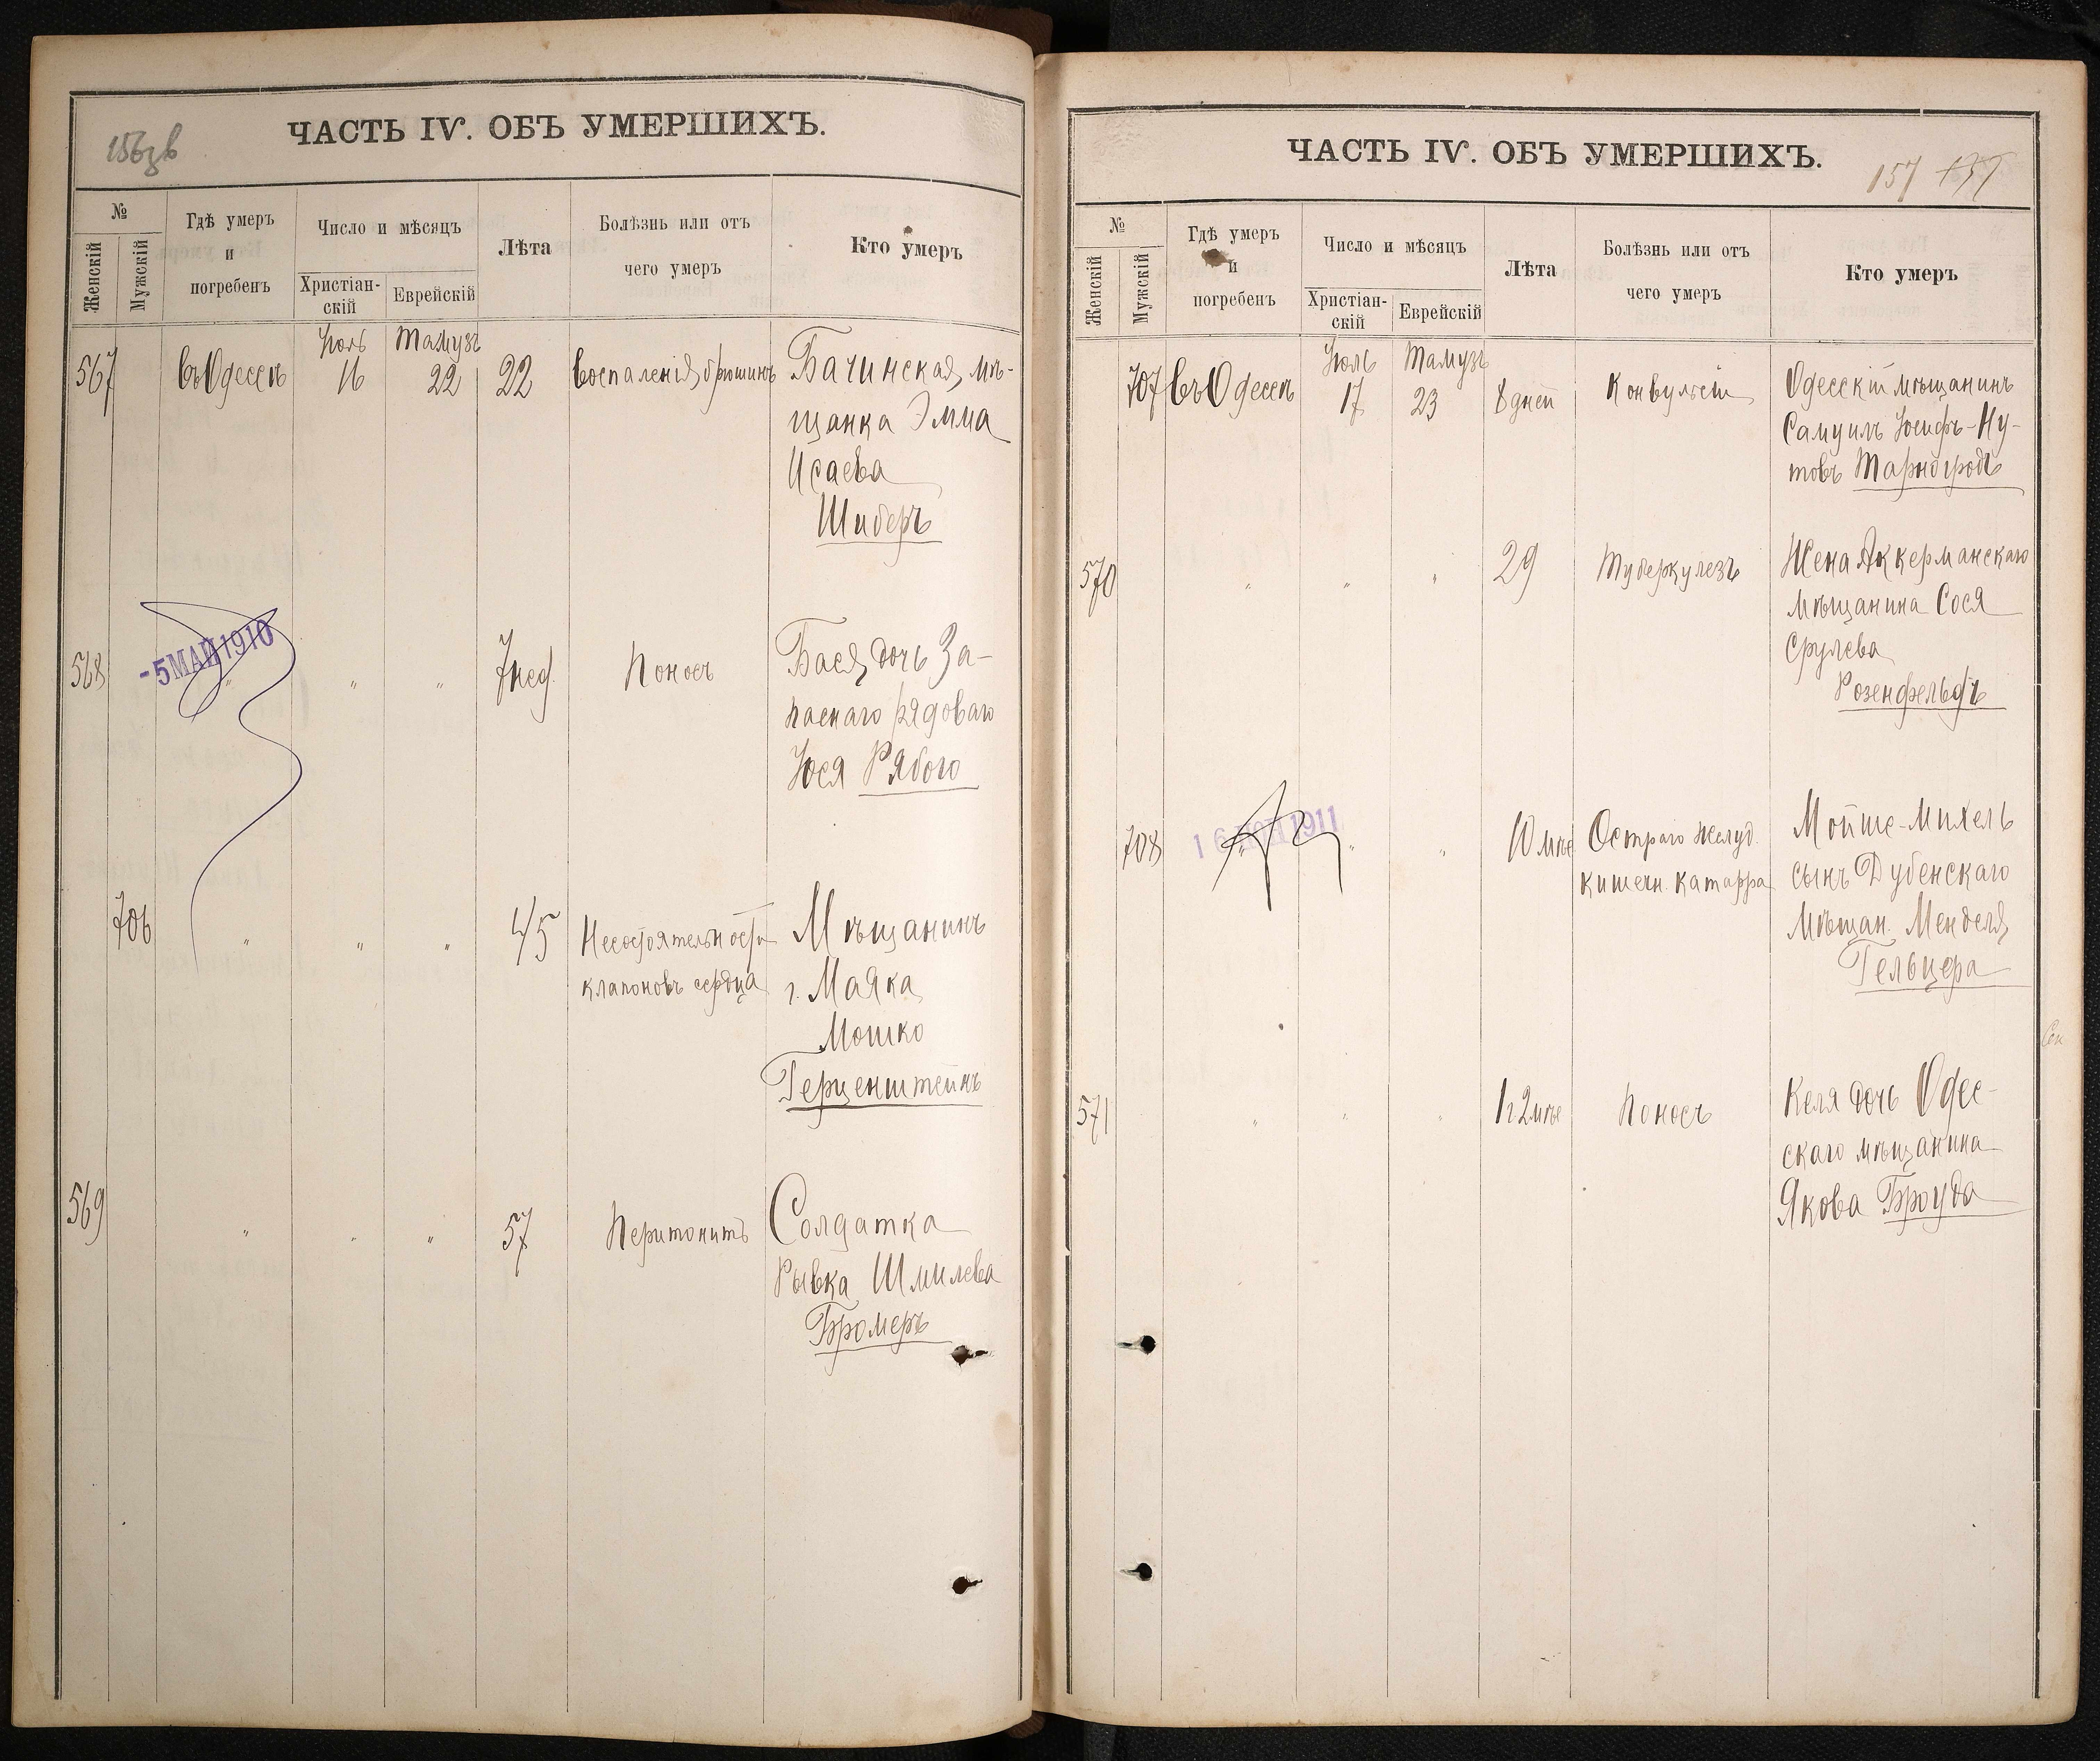 156 зв
ЧАСТЬ IV. ОБЪ УМЕРШИХЪ.
№
Женскій
Мужскій
Гдѣ умеръ
и
погребенъ
Число и мѣсяцъ
Христіан-
скій
Еврейскій
Лѣта
Болѣзнь или отъ
чего умеръ
Кто умеръ
Іюль Тамузъ
567 въ Одессѣ 16 22 22 Воспаленія брюшины Бачинская мѣ-
щанка Эмма
Исаева
Шиберъ
-5 МАЙ 1910
568 " " " 7 нед. Поносъ Бася дочь За-
паснаго рядоваго
Іося Рябого
706 " " " 45 Несостоятельности Мѣщанинъ
клапоновъ сердца г. Маяка
Мошко
Герценштейнъ
569 " " " 57 Перитонитъ Солдатка
Рывка Шмилева
Бромеръ
ЧАСТЬ IV. ОБЪ УМЕРШИХЪ.
157 157
№
Женскій
Мужскій
Гдѣ умеръ
и
погребенъ
Число и мѣсяцъ
Христіан-
скій
Еврейскій
Лѣта
Болѣзнь или отъ
чего умеръ
Кто умеръ
Іюль Тамузъ
707 въ Одессѣ 17 23 8 дней Конвульсіи Одесскій мѣщанинъ
Самуилъ Іосифъ-Ну-
товъ Тарногродъ
570 " " " 29 Туберкулезъ Жена Аккерманскаго
мѣщанина Сося
Срулева
Розенфельдъ
16 ІЮН 1911
708 " " " 10 мѣс Остраго желуд. Мойше-Михель
кишечн. катарра сынъ Дубенскаго
мѣщан. Менделя
Гельцера
571 " " " 1 г 2 мѣс Поносъ Келя дочь Одес-
скаго мѣщанина
Якова Броуда